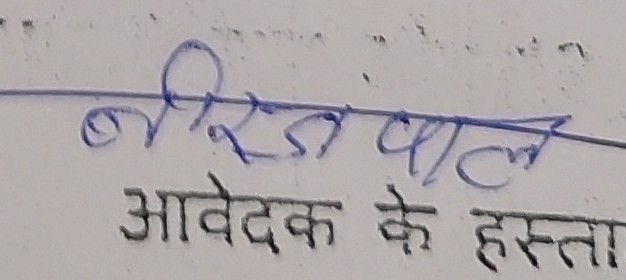 नीरज पाल
आवेदक के हस्ता